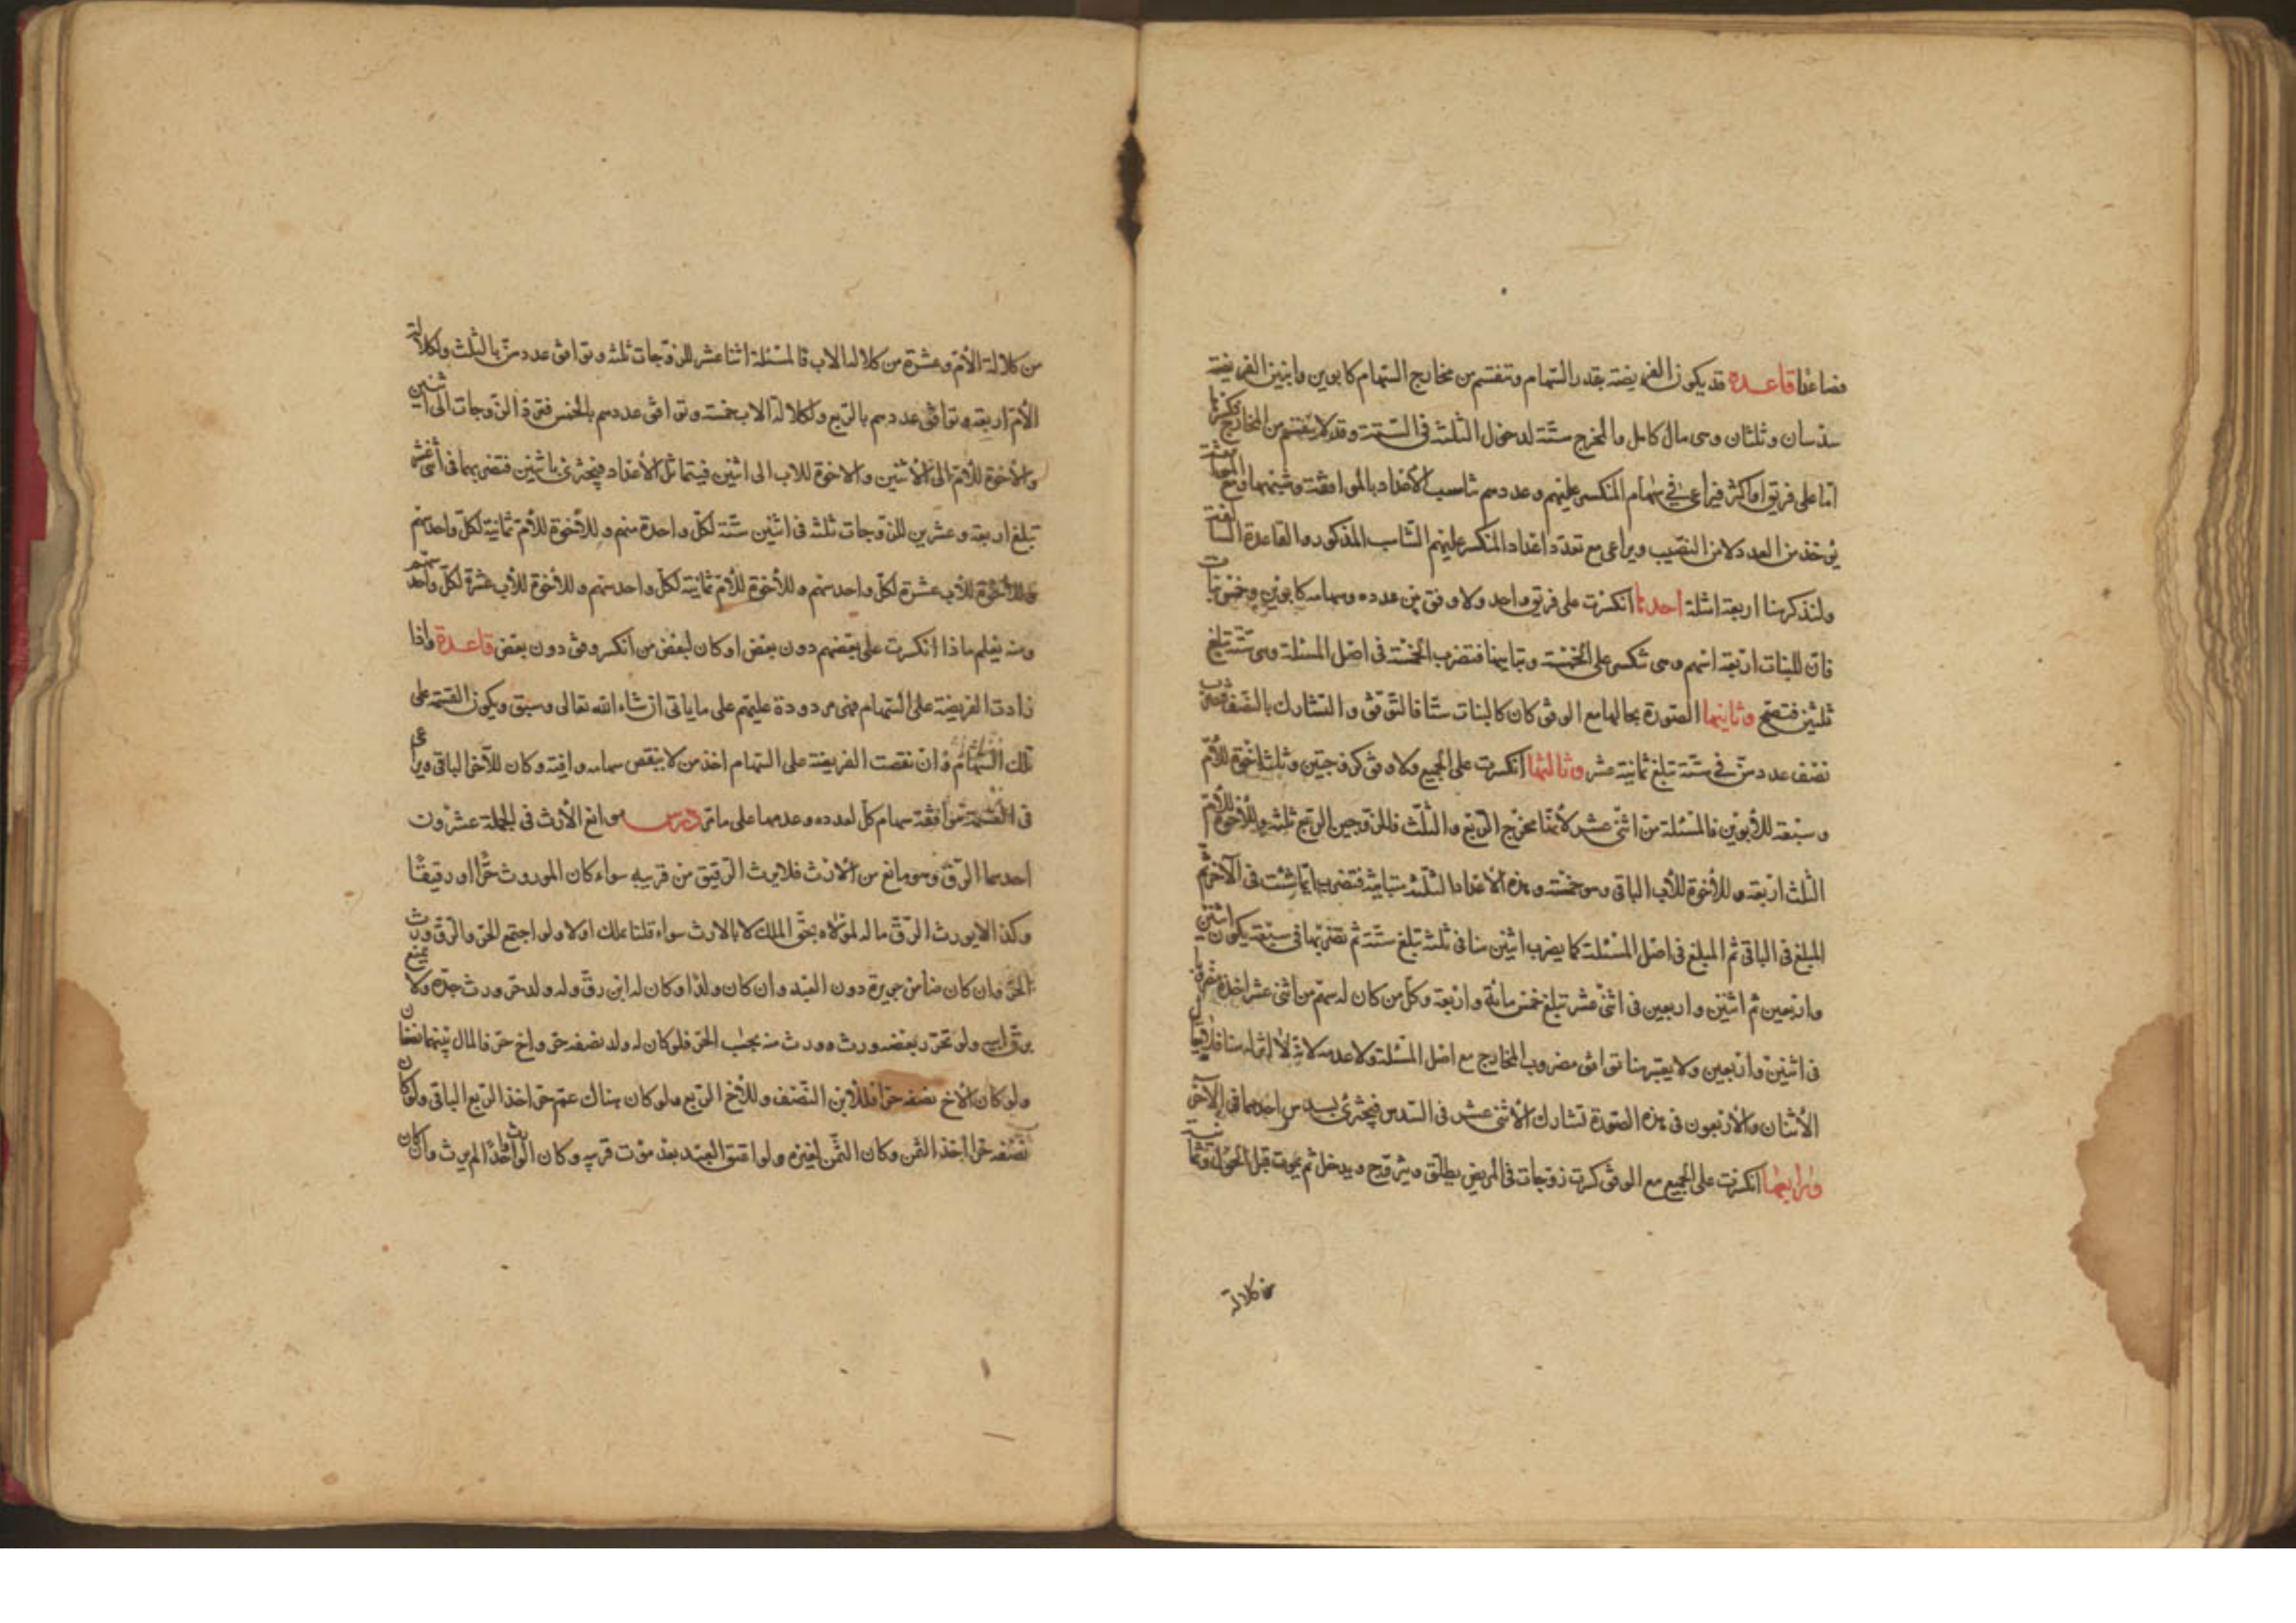 فصاعدا قاعدة قد يكون الفريضة بقدر السهام وتنقسم من مخارج السهام كابوين وابنين الفريضة
سدسان وثلثان وهى مال كامل والمخرج ستة لدخول الثلثة فى الستة وقد لا ينقسم من المخارج
اما على فريق او اكثر فيراعى فى سهام المنكسر عليهم وعددهم تناسب الأعداد بالموافقة وشبهها ومع
يؤخذ من العدد لا من النصيب ويراعى مع تعدد اعداد المنكسر عليهم التناسب المذكور والقاعدة السالفة
ولنذكر هنا اربعة امثلة احدها انكسرت على فريق واحد ولا وفق بين عدده وسهامه كابوين وخمس بنات
فان للبنات اربعة اسهم وهى تنكسر على الخمسة وتباينها فتضرب الخمسة فى اصل المسئلة وهى ستة تبلغ
ثلثين فتصح وثانيها الصورة بحالها مع الوفق كان كالبنات ستا فالتوفق والتشارك بالنصف فتضرب
نصف عددهن فى ستة تبلغ ثمانية عشر وثالثها انكسرت على الجميع ولا وفق كزوجتين وثلثة اخوة للأم
وسبعة للأبوين فالمسئلة من اثنى عشر لأنها مخرج الربع والثلث فللزوجين الربع ثلثة وللأخوة للأم
الثلث اربعة وللأخوة للأب الباقى وهو خمسة وهذه الأعداد الثلثة متباينة فتضرب ايها شئت فى الآخر ثم
المبلغ فى الباقى ثم المبلغ فى اصل المسئلة كما يضرب اثنين هنا فى ثلثة تبلغ ستة ثم تضربها فى سبعة يكون اثنين
واربعين ثم اثنين واربعين فى اثنى عشر تبلغ خمس مائة واربعة وكل من كان له سهم من اثنى عشر اخذه مضروبا
فى اثنين واربعين ولا يعتبر هنا توافق مضروب المخارج مع اصل المسئلة ولا عدمه لانه لا اثر له هنا فلا يقال
الأثنان والأربعون فى هذه الصورة تشارك الأثنى عشر فى السدس فيجتزئ بسدس احدهما فى الآخر
ورابعها انكسرت على الجميع مع الوفق كست زوجات فى المريض يطلق ويتزوج ويدخل ثم يموت قبل الحول وثمانية
من كلالة
من كلالة الأم وعشرة من كلالة الاب فالمسئلة اثنا عشر للزوجات ثلثة وتوافق عددهن بالثلث ولكلالة
الأم اربعة وتوافق عددهم بالربع ولكلالة الاب خمسة وتوافق عددهم بالخمس فترد الزوجات الى اثنين
والأخوة للأم الى الأثنين والاخوة للاب الى اثنين فيتماثل الأعداد فيجتزئ باثنين فتضربهما فى اثنى عشر
تبلغ اربعة وعشرين للزوجات ثلثة فى اثنين ستة لكل واحدة سهم وللأخوة للأم ثمانية لكل واحد سهم
وللأخوة للأب عشرة لكل واحد سهم وللأخوة للأم ثمانية لكل واحد سهم وللأخوة للأب عشرة لكل واحد سهم
ومنه يعلم ما اذا انكسرت على بعضهم دون بعض او كان لبعض من انكسر وفق دون بعض قاعدة واذا
زادت الفريضة على السهام فهى مردودة عليهم على ما ياتى ان شاء الله تعالى وسبق ويكون القسمة على
تلك السهام وان نقصت الفريضة على السهام اخذ من لا ينقص سهامه وافية وكان للآخر الباقى ويراعى
فى القسمة موافقة سهام كل لعدده وعدمها على ما مر درس موانع الأرث فى الجملة عشرون
احدها الرق وهو مانع من الأرث فلا يرث الرقيق من قريبه سواء كان الموروث حرا او رقيقا
وكذا لا يورث الرق ماله لمولاه بحق الملك لا بالارث سواء قلنا يملك اولا ولو اجتمع الحر والرق ورث
الحر وان كان ضامن جريرة دون العبد وان كان ولدا وكان له ابن رق وله ولد حر ورث جده ولا يمنع
برق ابيه ولو تحرر بعضه ورث وورث منه بحسب الحر فلو كان له ولد نصفه حر واخ حر فالمال بينهما نصفان
ولو كان الأخ نصفه حرا فللابن النصف وللأخ الربع ولو كان هناك عم حر اخذ الربع الباقى ولو كان
نصفه حرا اخذ الثمن وكان الثمن لغيره ولو اعتق العبد بعد موت قريبه وكان الوارث واحدا لم يرث وان كان